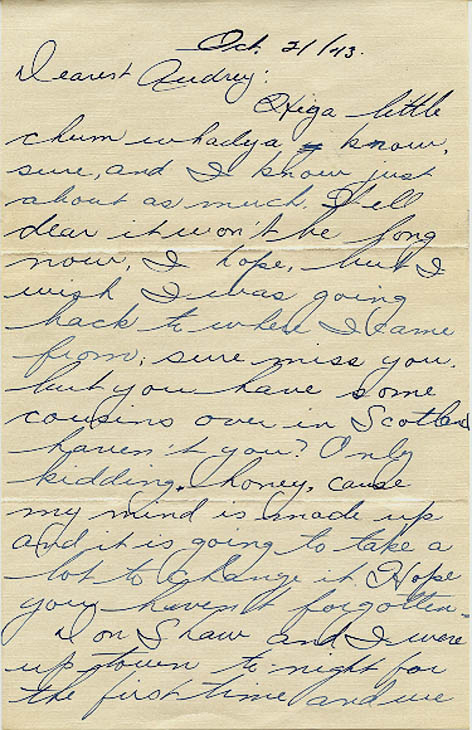 Oct. 21/43.
Dearest Audrey:
Hiya little
chum whadya know,
sure, and I know just
about as much. Well
dear it won't be long
now, I hope, but I
wish I was going
back to where I came
from, sure miss you.
but you have some
cousins over in Scotland
haven't you? Only
kidding, honey, cause
my mind is made up
and it is going to take a
lot to change it. Hope
you haven't forgotten.
Don Shaw and I were
up town to-night for
the first time and we